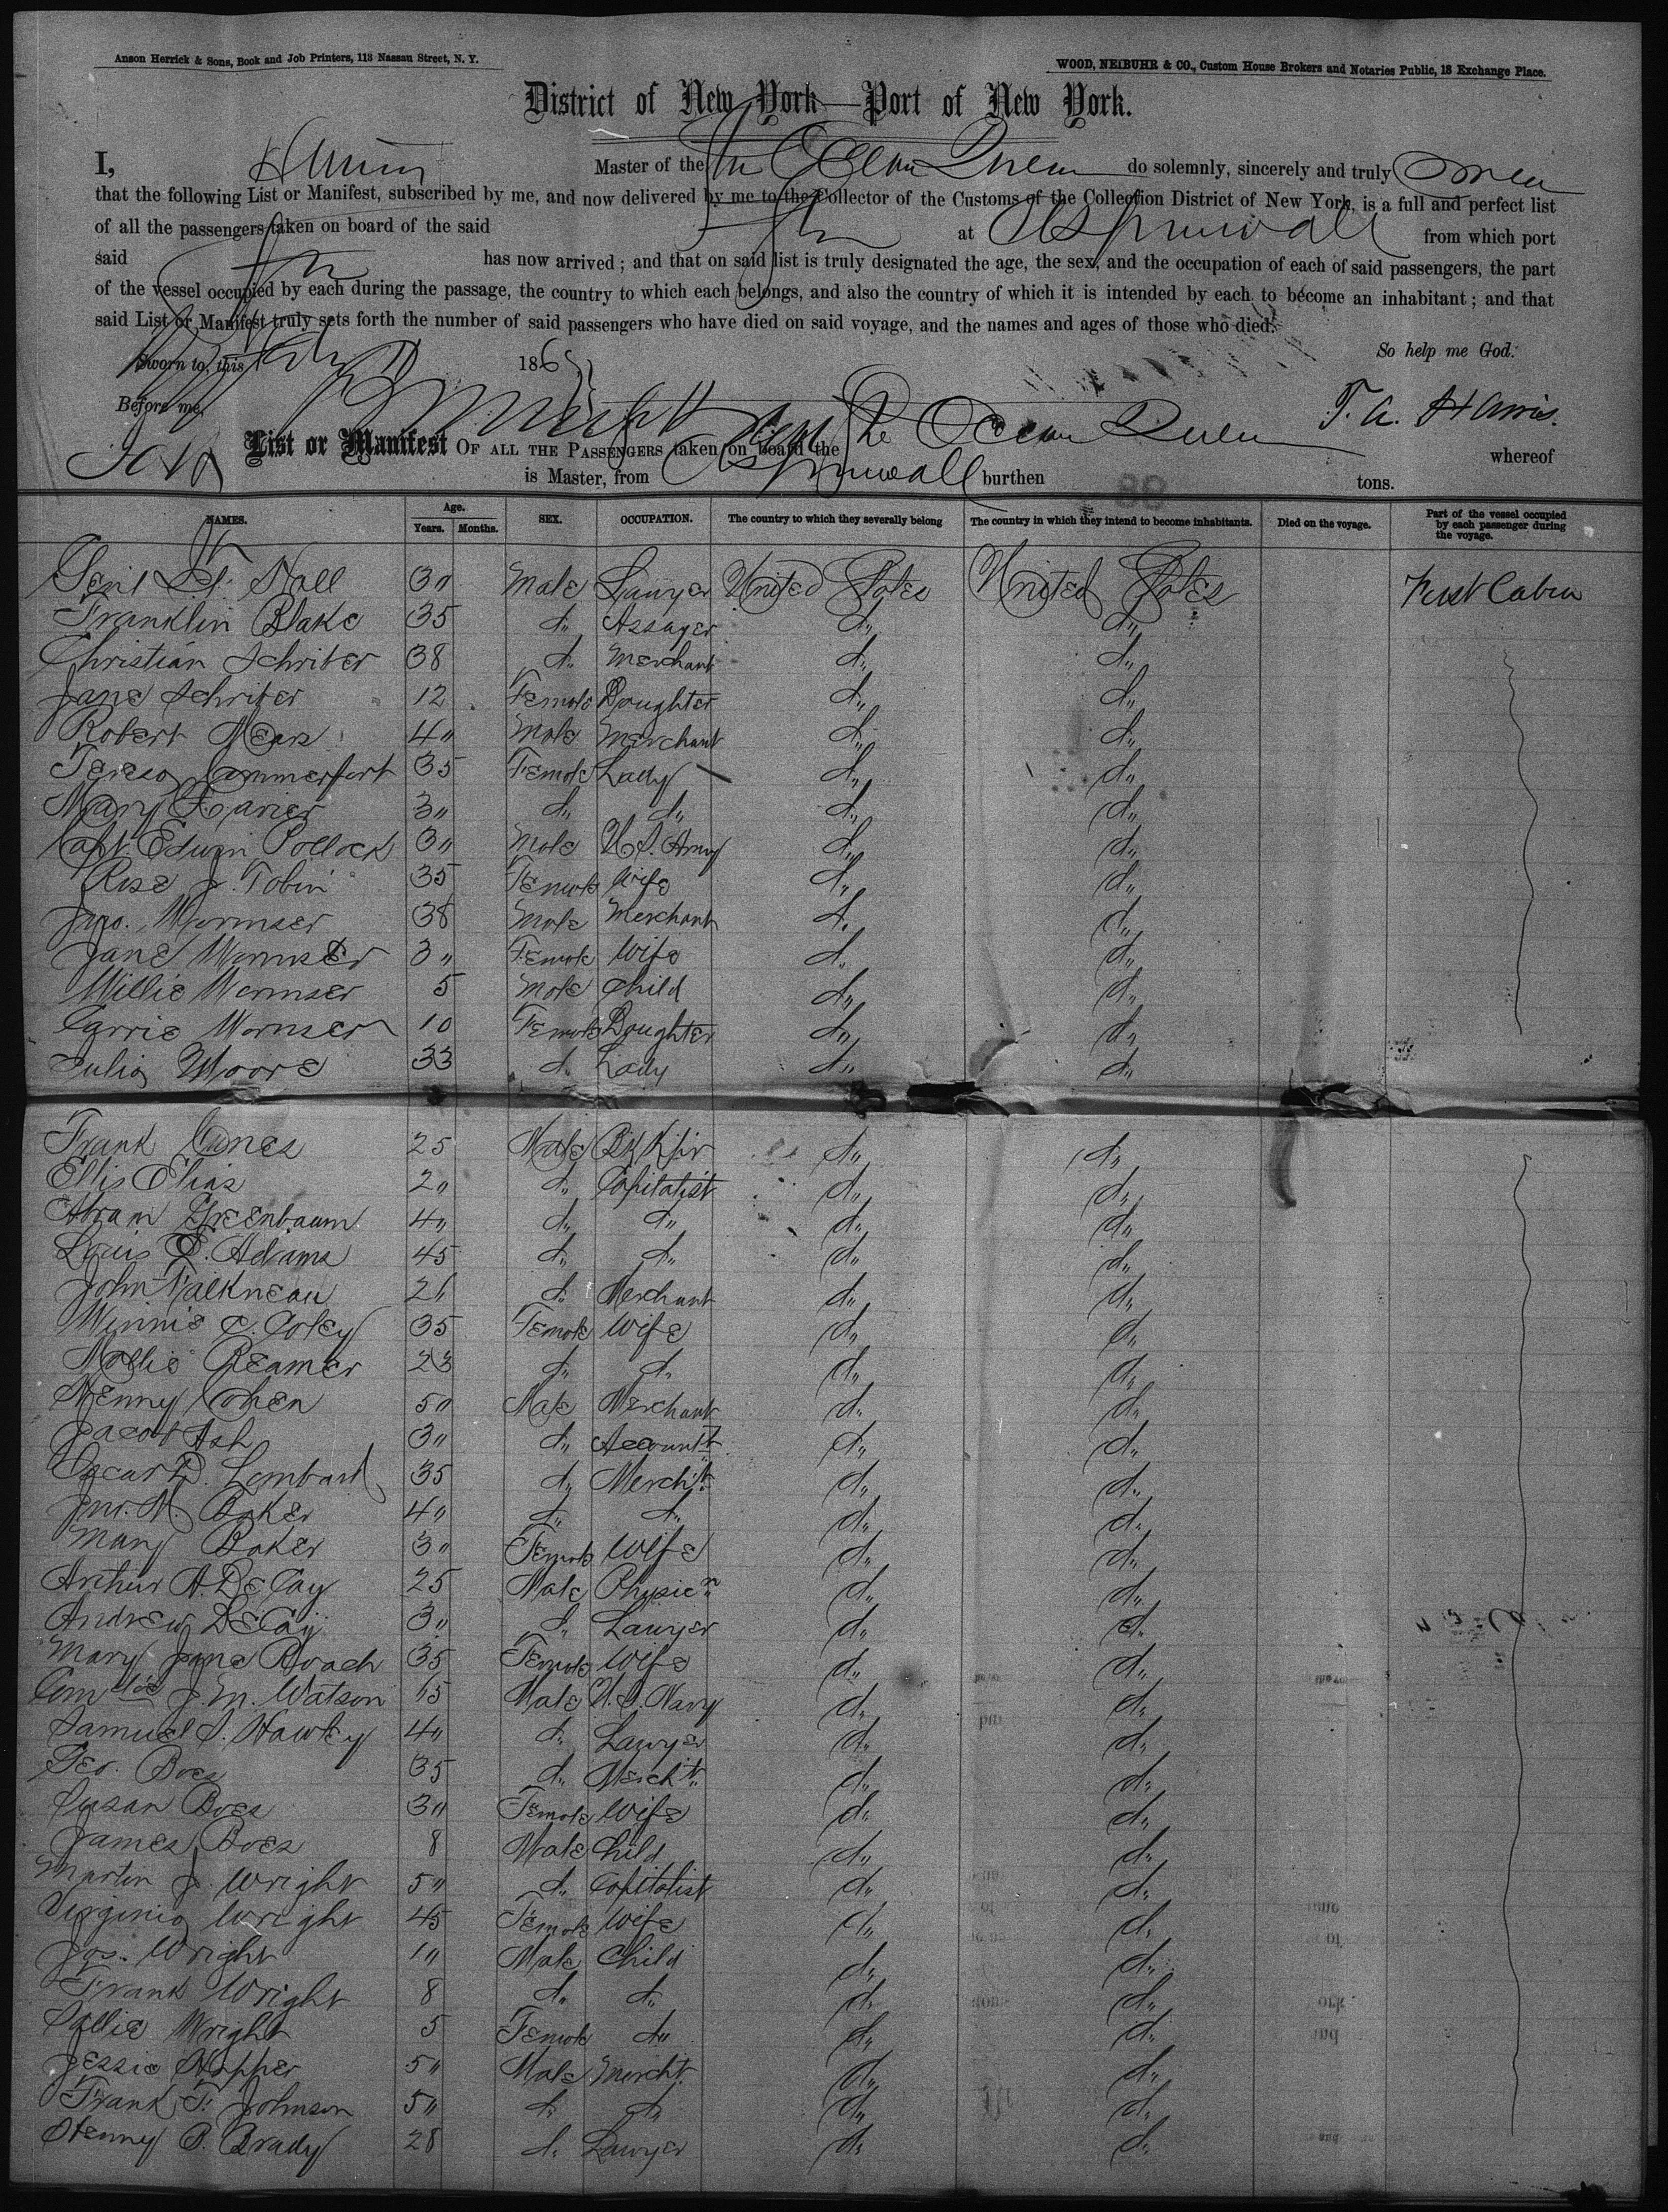 Anson Herrick & Sons, Book and Job Printers, 113 Nassau Street, N. Y.
WOOD, NEIBUHR & CO., Custom House Brokers and Notaries Public, 18 Exchange Place.
District of New York—Port of New York.
I, Harris Master of the Str Ocean Queen do solemnly, sincerely and truly swear
that the following List or Manifest, subscribed by me, and now delivered by me to the Collector of the Customs of the Collection District of New York, is a full and perfect list
of all the passengers taken on board of the said Str at Aspinwall from which port
said Str has now arrived; and that on said list is truly designated the age, the sex, and the occupation of each of said passengers, the part
of the vessel occupied by each during the passage, the country to which each belongs, and also the country of which it is intended by each to become an inhabitant; and that
said List or Manifest truly sets forth the number of said passengers who have died on said voyage, and the names and ages of those who died.
Sworn to, this 186 So help me God.
Before me, T. A. Harris.
List or Manifest OF ALL THE PASSENGERS taken on board the Ocean Queen whereof
is Master, from Aspinwall burthen tons.
NAMES. Age. Years. Months. SEX. OCCUPATION. The country to which they severally belong The country in which they intend to become inhabitants. Died on the voyage. Part of the vessel occupied by each passenger during the voyage.
Hall 3" Male Lawyer United States United States First Cabin
Franklin Blake 35 d" Assayer d" d"
Christian Schriber 38 d" Merchant d" d"
Jane Schriber 12 Female Daughter d" d"
Robert Mears 4" Male Merchant d" d"
Teresa Commerfort 35 Female Lady d" d"
Mary 3" d" d" d" d"
Capt. Edwin Pollock 3" Male U.S. Army d" d"
Rose J. Tobin 35 Female Wife d" d"
Jno. Wormser 38 Male Merchant d" d"
Jane Wormser 3" Female Wife d" d"
Willie Wormser 5 Male Child d" d"
Carrie Wormser 10 Female Daughter d" d"
Julia Moore 33 d" Lady d" d"
Frank Jones 25 Male d" d"
Ellis Elias 2" d" Capitalist d" d"
Abram Greenbaum 4" d" d" d" d"
Louis E. Adams 45 d" d" d" d"
John Falkneau 26 d" Merchant d" d"
Minnie C. Coley 35 Female Wife d" d"
Mollie Reamer 23 d" d" d" d"
Henny Cohen 5" Male Merchant d" d"
Jacob Ash 3" d" Accountt d" d"
Oscar D. Lombard 35 d" Mercht. d" d"
Jno. M. Baker 4" d" d" d" d"
Mary Baker 3" Female Wife d" d"
Arthur A. DeCay 25 Male Physicn d" d"
Andrew DeCay 3" d" Lawyer d" d"
Mary Jane Roach 35 Female Wife d" d"
J. M. Watson Male U.S. Navy d" d"
Samuel S. Hawley 4" d" Lawyer d" d"
Geo. Boes 35 d" Mercht. d" d"
Susan Boes 3" Female Wife d" d"
James Boes 8 Male Child d" d"
Martin J. Wright 5" d" Capitalist d" d"
Virginia Wright 45 Female Wife d" d"
Jos. Wright 1" Male Child d" d"
Frank Wright 8 d" d" d" d"
Sallie Wright 5 Female d" d" d"
Jessie Hopper 5" Male Mercht. d" d"
Frank T. Johnson 5" d" d" d" d"
Henny P. Brady 28 d" Lawyer d" d"